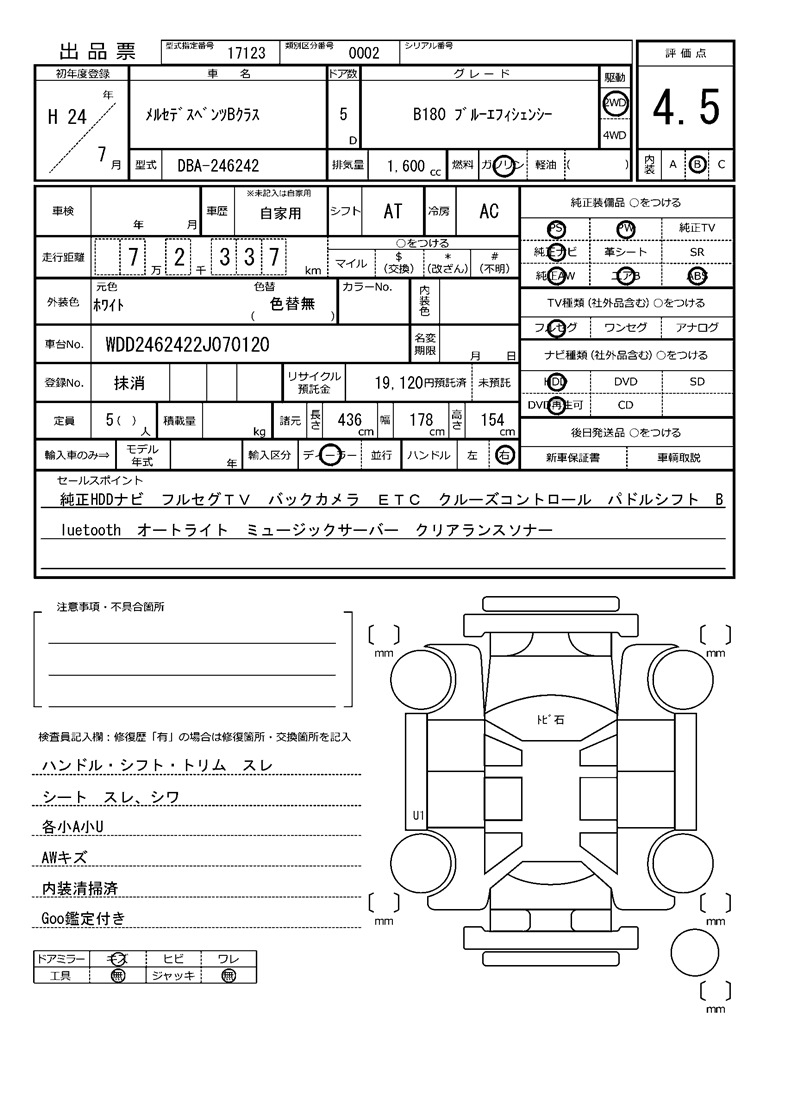 出品票 型式指定番号 17123 類別区分番号 0002 シリアル番号
評価点
初年度登録 車名 ドア数 グレード 駆動
H 24 年 7 月
ﾒﾙｾﾃﾞｽﾍﾞﾝﾂBクラス 5 D B180 ブルーエフィシェンシー
2WD
4WD
4.5
型式 DBA-246242 排気量 1,600 cc 燃料 ガソリン 軽油 ( )
内装 A B C
車検 年 月 車歴 ※未記入は自家用 自家用 シフト AT 冷房 AC
純正装備品 ○をつける
PS PW 純正TV
走行距離 7 万 2 千 3 3 7 km
○をつける
マイル $ (交換) * (改ざん) # (不明)
純正ナビ 革シート SR
純正AW エアB ABS
外装色 元色 ﾎﾜｲﾄ 色替 ( 色替無 ) カラーNo. 内装色
TV種類 (社外品含む) ○をつける
フルセグ ワンセグ アナログ
車台No. WDD2462422J070120 名変期限 月 日
ナビ種類 (社外品含む) ○をつける
登録No. 抹消 リサイクル預託金 19,120円預託済 未預託
HDD DVD SD
DVD再生可 CD
定員 5( ) 人 積載量 kg 諸元 長さ 436 cm 幅 178 cm 高さ 154 cm
後日発送品 ○をつける
輸入車のみ⇒ モデル年式 年 輸入区分 ディーラー 並行 ハンドル 左 右
新車保証書 車輌取説
セールスポイント
純正HDDナビ フルセグＴＶ バックカメラ ＥＴＣ クルーズコントロール パドルシフト B
luetooth オートライト ミュージックサーバー クリアランスソナー
注意事項・不具合箇所
mm
mm
ﾄﾋﾞ石
検査員記入欄：修復歴「有」の場合は修復箇所・交換箇所を記入
ハンドル・シフト・トリム スレ
シート スレ、シワ
U1
各小A小U
AWキズ
内装清掃済
Goo鑑定付き
mm
mm
ドアミラー キズ ヒビ ワレ
工具 無 ジャッキ 無
mm